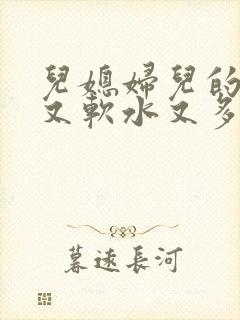 兒媳婦兒的
又軟水又多
暮遠長河